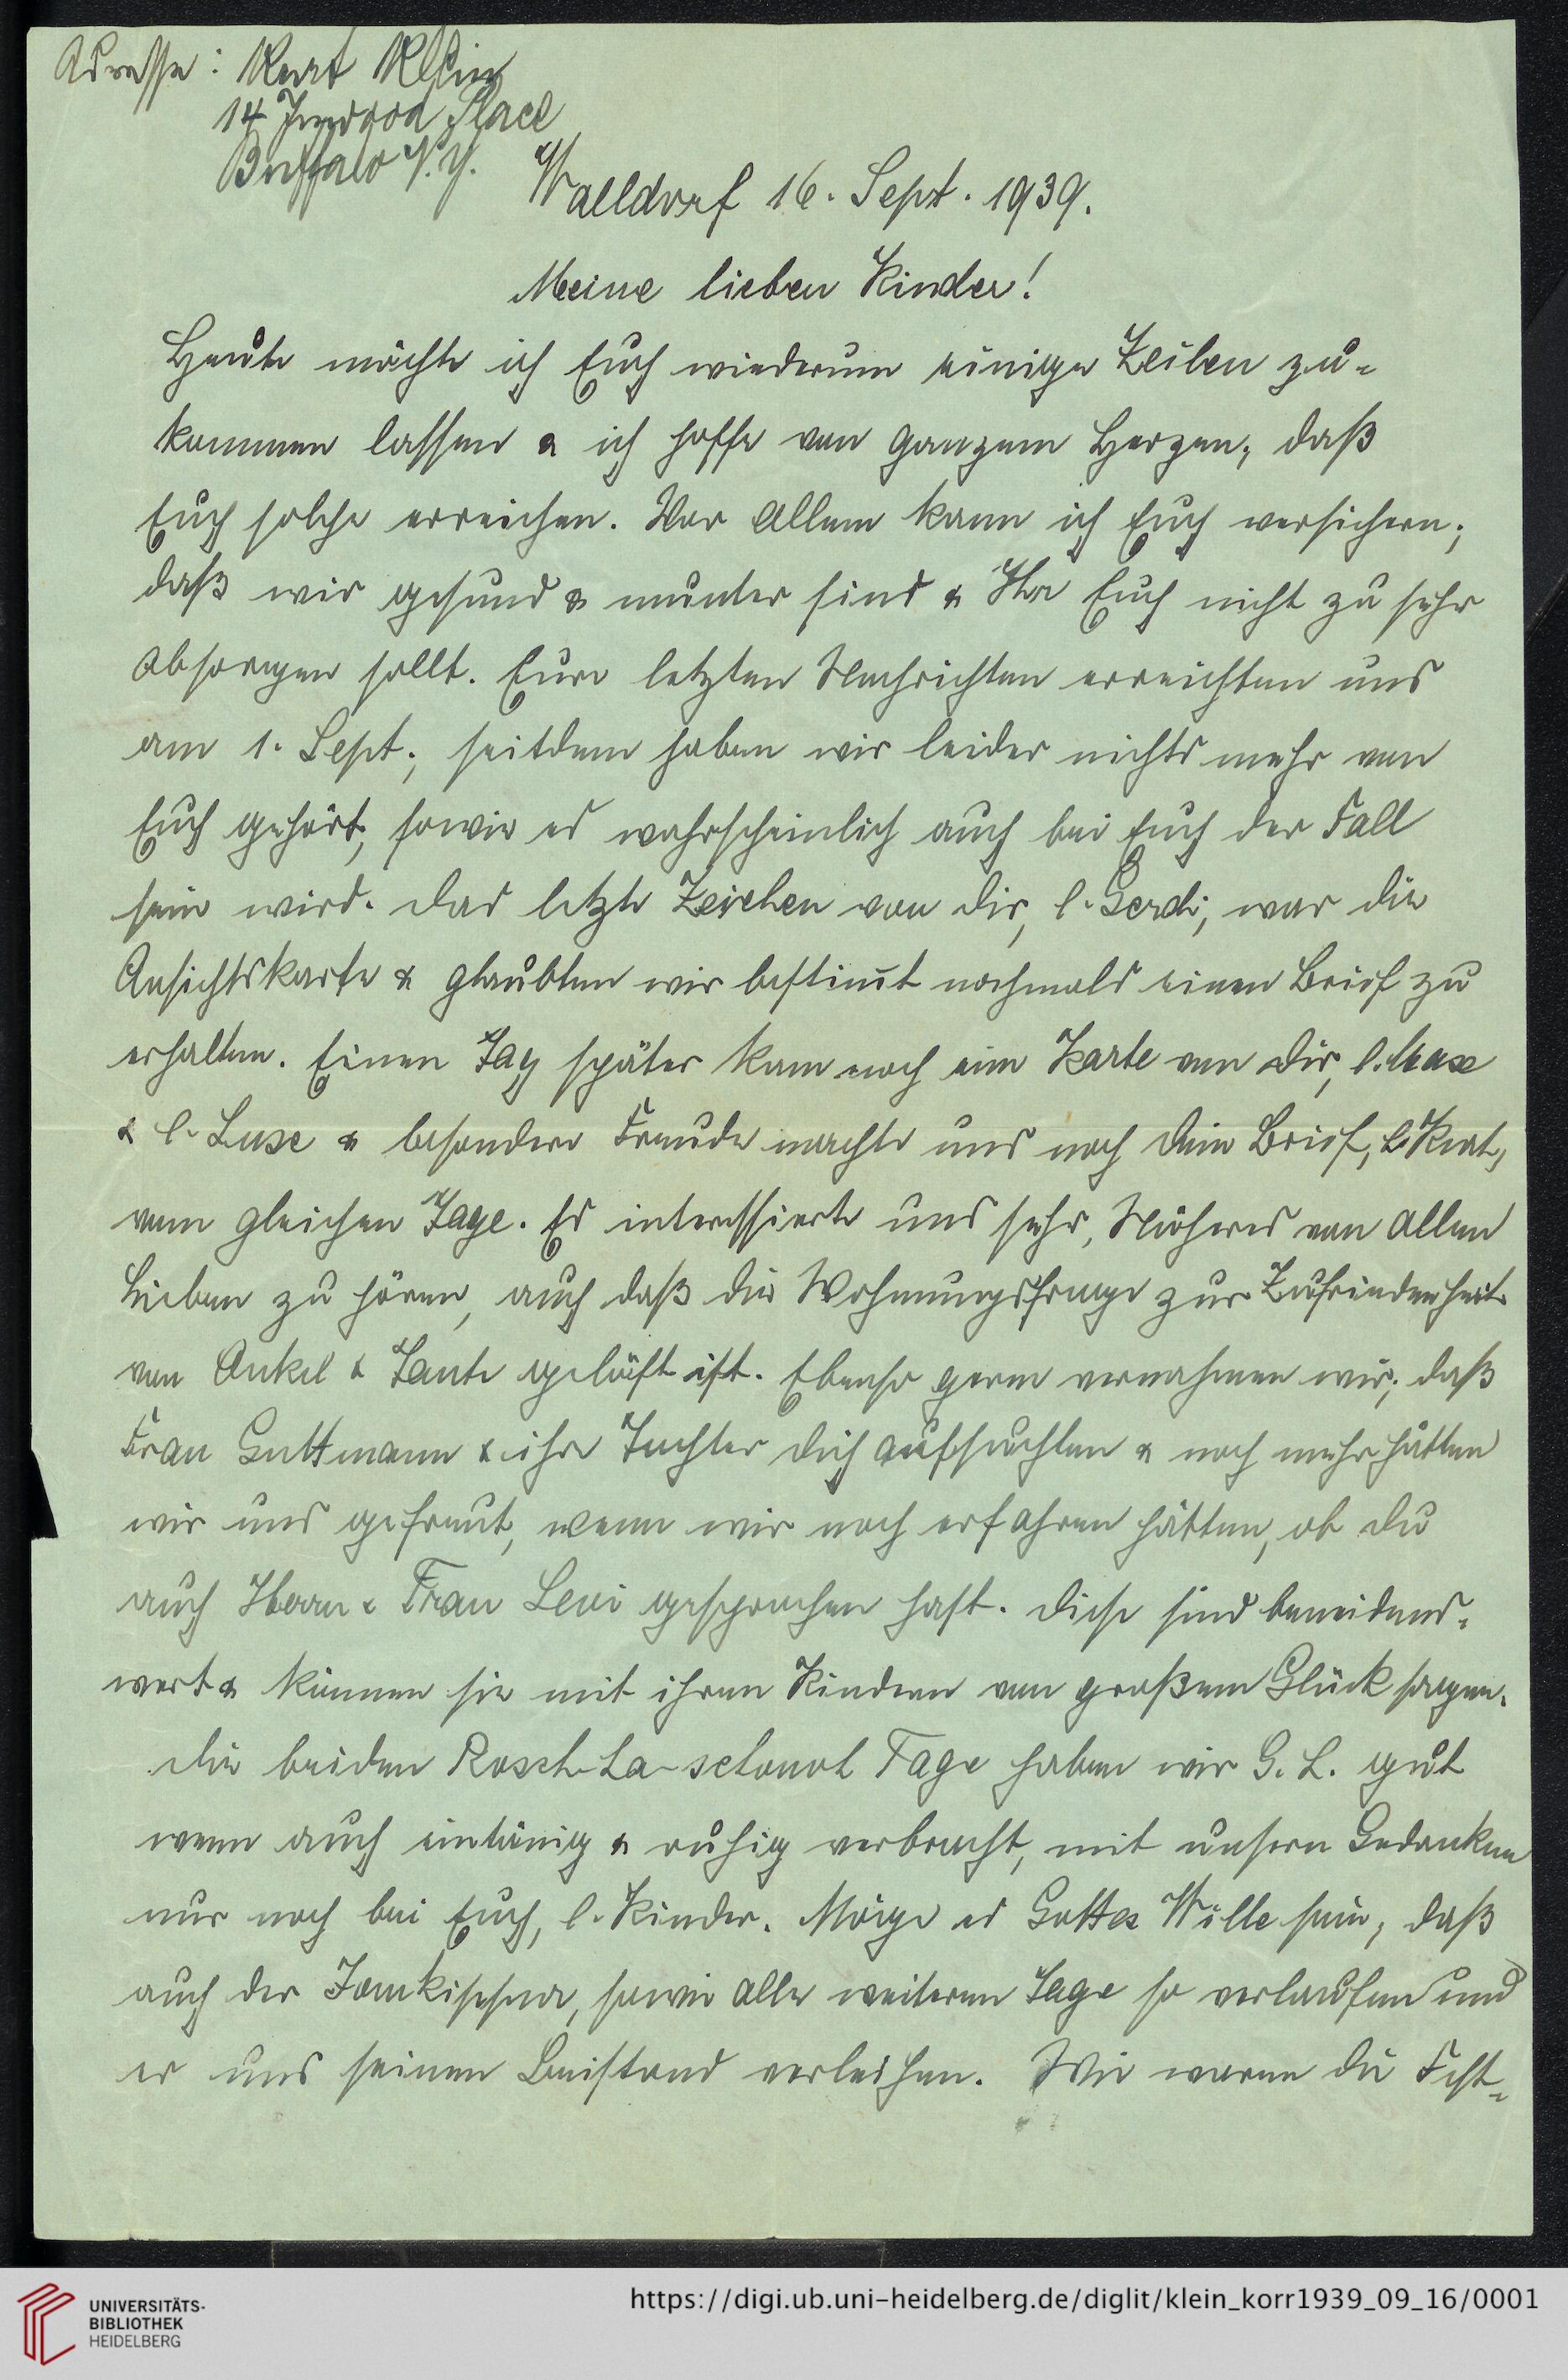 Adresse: Kurt Klein
14 Inwood Place
Buffalo N.Y.
Walldorf 16. Sept. 1939.
Meine lieben Kinder!
Heute möchte ich Euch wiederum einige Zeilen zu-
kommen lassen & ich hoffe von ganzem Herzen, daß
Euch solche erreichen. Vor Allem kann ich Euch versichern,
daß wir gesund & munter sind & Ihr Euch nicht zu sehr
absorgen sollt. Eure letzten Nachrichten erreichten uns
am 1. Sept., seitdem haben wir leider nichts mehr von
Euch gehört, sowie es wahrscheinlich auch bei Euch der Fall
sein wird. Das letzte Zeichen von Dir, l. Gerdi, war die
Ansichtskarte & glaubten wir bestimt nochmals einen Brief zu
erhalten. Einen Tag später kam noch eine Karte von Dir, l. Max
& l. Luse & besondere Freude machte uns noch Dein Brief, l. Kurt,
vom gleichen Tage. Es interessierte uns sehr, Näheres von allen
Lieben zu hören, auch daß die Wohnungsfrage zur Zufriedenheit
von Onkel & Tante gelöst ist. Ebenso gerne vernahmen wir, daß
Frau Guttmann & ihre Tochter Dich aufsuchten & noch mehr hätten
wir uns gefreut, wenn wir noch erfahren hätten, ob Du
auch Herrn & Frau Levi gesprochen hast. Diese sind beneidens-
wert & können sie mit ihren Kindern von großem Glück sagen.
Die beiden Rosch-ha-schonoh Tage haben wir G. L. gut
wenn auch eintönig & ruhig verbracht, mit unsern Gedanken
nur noch bei Euch, l. Kinder. Möge es Gottes Wille sein, daß
auch der Jomkippur, sowie alle weiteren Tage so verlaufen und
er uns seinen Beistand verleihen. Wir waren die Fest-
UNIVERSITÄTS-
BIBLIOTHEK
HEIDELBERG
https://digi.ub.uni-heidelberg.de/diglit/klein_korr1939_09_16/0001